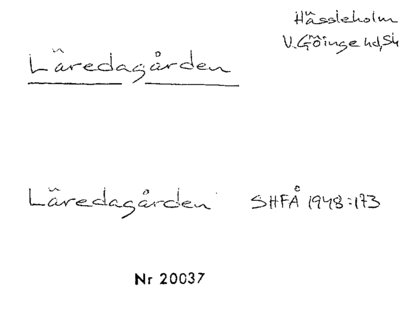 Hässleholm
V. Göinge hd, Sk
Läredagården
Läredagården SHFÅ 1948:173
Nr 20037